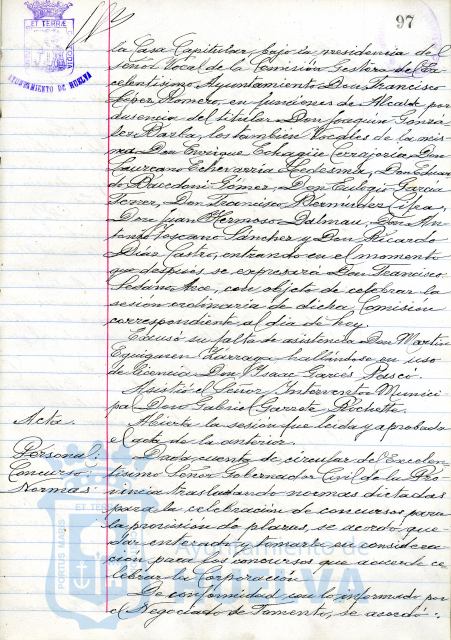 97
AYUNTAMIENTO DE HUELVA
la Casa Capitular, bajo la presidencia del
Señor Vocal de la Comisión Gestora del Ex
celentísimo Ayuntamiento Don Francisco
López Romero, en funciones de Alcalde por
ausencia del titular Don Joaquín Gonzá
lez Barba, los también Vocales de la mis
ma Don Enrique Echagüe Cerrajería, Don
Laureano Echevarría Ledesma, Don Eduar
do Gómez, Don Eulogio García
Don Francisco Bermúdez
Don Juan Hermoso Dalmau, Don An
tonio Toscano Sánchez y Don Ricardo
Díaz Castro, entrando en el momento
que después se expresará Don Francisco
con objeto de celebrar la
sesión ordinaria de dicha Comisión
correspondiente al día de hoy.
Excusó su falta de asistencia Don Martín
Eguiguren hallándose en uso
de licencia Don Isaac Garcés
Asistió el Señor Interventor Munici
pal Don Gabriel Garrote
Acta.
Abierta la sesión fué leída y aprobada
el acta de la anterior.
Personal:
Concurso
Normas
Dada cuenta de circular del Excelen
tísimo Señor Gobernador Civil de la Pro
vincia trasladando normas dictadas
para la celebración de concursos para
la provisión de plazas, se acordó que
dar enterado y tomarla en considera
ción para los concursos que acuerde ce
lebrar la Corporación
De conformidad con lo informado por
el Negociado de Fomento, se acordó:
Ayuntamiento de
HUELVA
PORTUS MARIS
ET TERRÆ